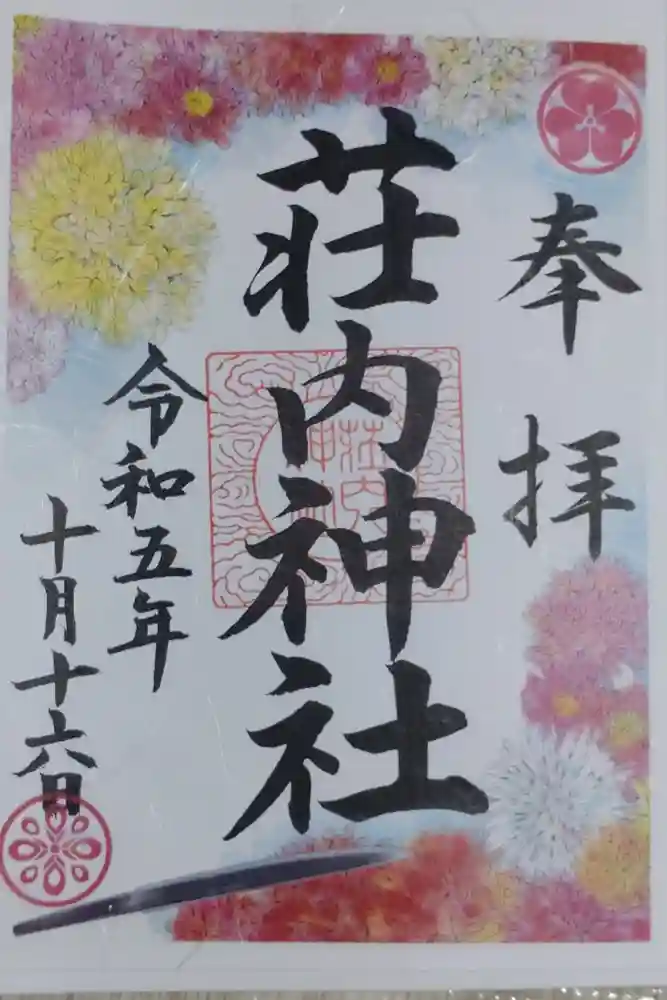 奉拝
荘内神社
令和五年
十月十六日